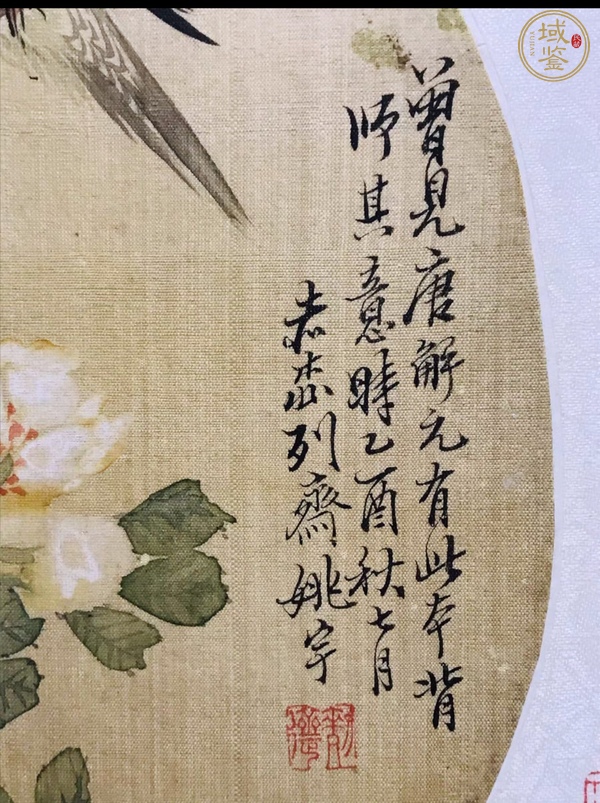 曾見唐解元有此本背
師其意時乙酉秋七月
列齋姚宇
域鉴
YUJIAN